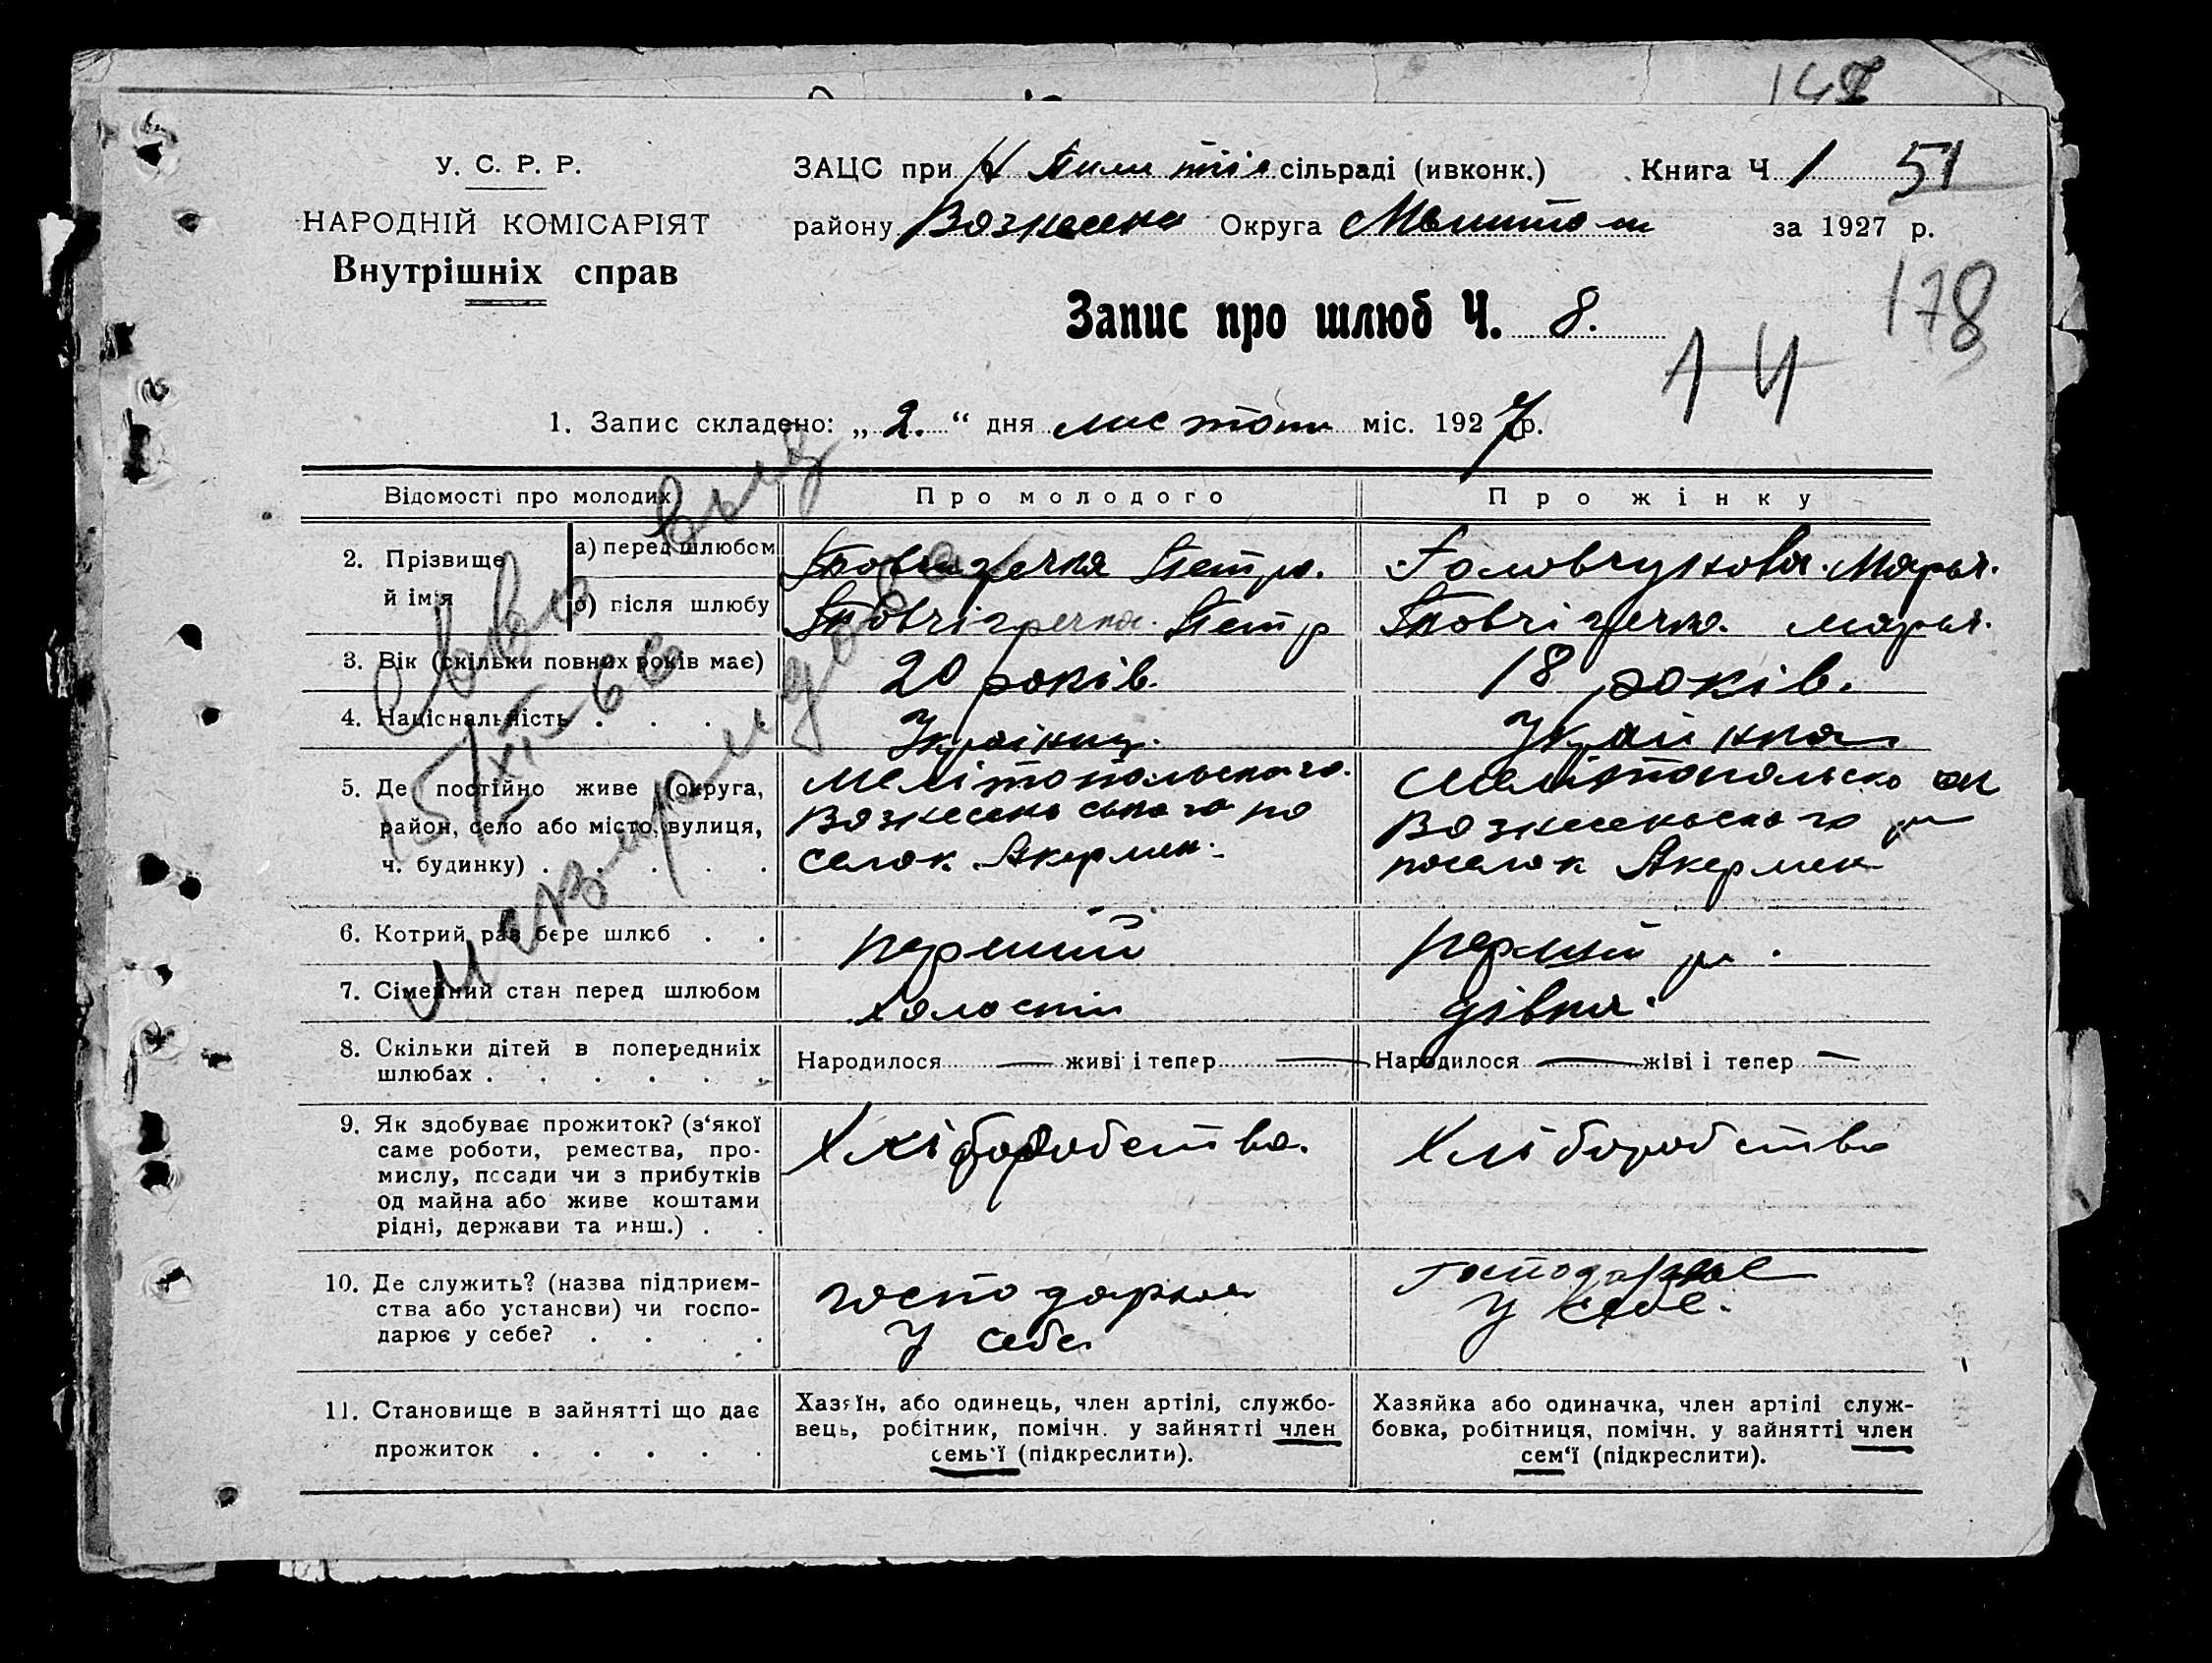 У. С. Р. Р.
НАРОДНІЙ КОМІСАРІЯТ
Внутрішніх справ
ЗАЦС при сільраді (ивконк.) Книга Ч 1 51
району Вознесенс Округа за 1927 р.
178
Запис про шлюб Ч. 8.
14
1. Запис складено: „ 2. “ дня листопа міс. 1927 р.
Відомості про молодих
Про молодого
Про жінку
2. Прізвище й імія
а) перед шлюбом
Петро.
Марья.
б) після шлюбу
Товчігречка. Петр
Товчігречка. Марья.
3. Вік (скільки повних років має)
20 років.
18 років.
4. Національність . . . .
Українец.
Українка
5. Де постійно живе (округа,
район, село або місто, вулиця,
ч. будинку) . . . . .
Мелітопольського.
Вознесенського по
селок. Акермен.
Мелітопольско ок
Вознесенського р
поселок Акермен
6. Котрий раз бере шлюб . .
перший
перший р.
7. Сімейний стан перед шлюбом
холостій
дівка.
8. Скільки дітей в попередниіх
шлюбах . . . . . .
Народилося — живі і тепер —
Народилося — жіві і тепер —
9. Як здобуває прожиток? (з‘якої
саме роботи, ремества, про-
мислу, посади чи з прибутків
од майна або живе коштами
рідні, держави та инш.) . .
Хліборобство.
Хліборобство
10. Де служить? (назва підприєм-
ства або установи) чи госпо-
дарює у себе? . . . .
у себе
у себе.
11. Становище в зайнятті що дає
прожиток . . . . .
Хазяїн, або одинець, член артілі, службо-
вець, робітник, помічн. у зайнятті член
семь‘ї (підкреслити).
Хазяйка або одиначка, член артілі служ-
бовка, робітниця, помічн. у зайнятті член
сем‘ї (підкреслити).
15/XII-66